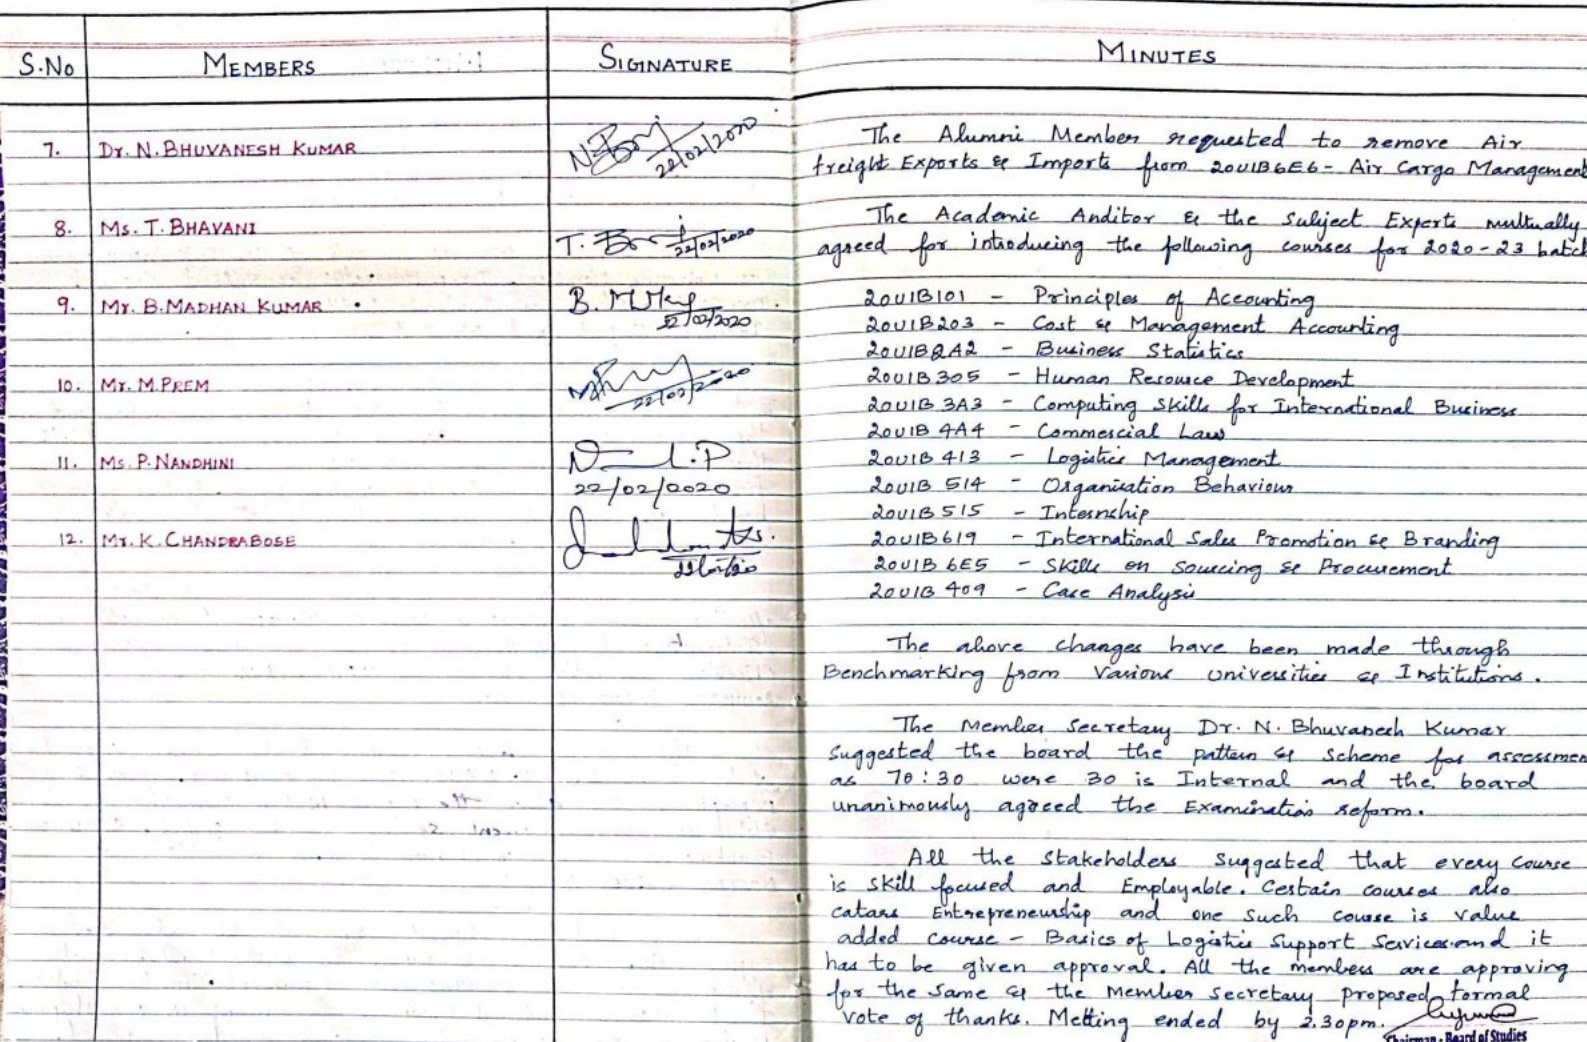 S.No MEMBERS SIGINATURE
7. Dr. N. BHUVANESH KUMAR 22/02/2020
8. Ms. T. BHAVANI T. 22/02/2020
9. Mr. B. MADHAN KUMAR B. M 22/02/2020
10. Mr. M. PREM 22/02/2020
11. Ms. P. NANDHINI
22/02/2020
12. Mr. K. CHANDRABOSE
MINUTES
The Alumni Member requested to remove Air
freight Exports & Imports from 20UIB6E6 - Air Cargo Management
The Academic Anditor & the Subject Experts multually
agreed for introducing the following courses for 2020-23 batch
20UIB101 - Principles of Accounting
20UIB203 - Cost & Management Accounting
20UIB2A2 - Business Statistics
20UIB305 - Human Resource Development
20UIB 3A3 - Computing Skills for International Business
20UIB 4A4 - Commercial Law
20UIB 413 - Logistics Management
20UIB 514 - Organisation Behaviour
20UIB 515 - Internship
20UIB619 - International Sales Promotion & Branding
20UIB 6E5 - Skills on Sourcing & Procurement
20UIB 409 - Case Analysis
The above changes have been made through
Benchmarking from Various Universities & Institutions.
The Member Secretary Dr. N. Bhuvanesh Kumar
suggested the board the pattern & Scheme for assessmen
as 70:30 were 30 is Internal and the board
unanimously agreed the Examination reform.
All the Stakeholders Suggested that every Course
is Skill focused and Employable. Certain courses also
catars Entrepreneurship and one such course is value
added course - Basics of Logistic Support Services.and it
has to be given approval. All the members are approving
for the same & the Member Secretary proposed formal
vote of thanks. Metting ended by 2.30pm.
Chairman - Board of Studies